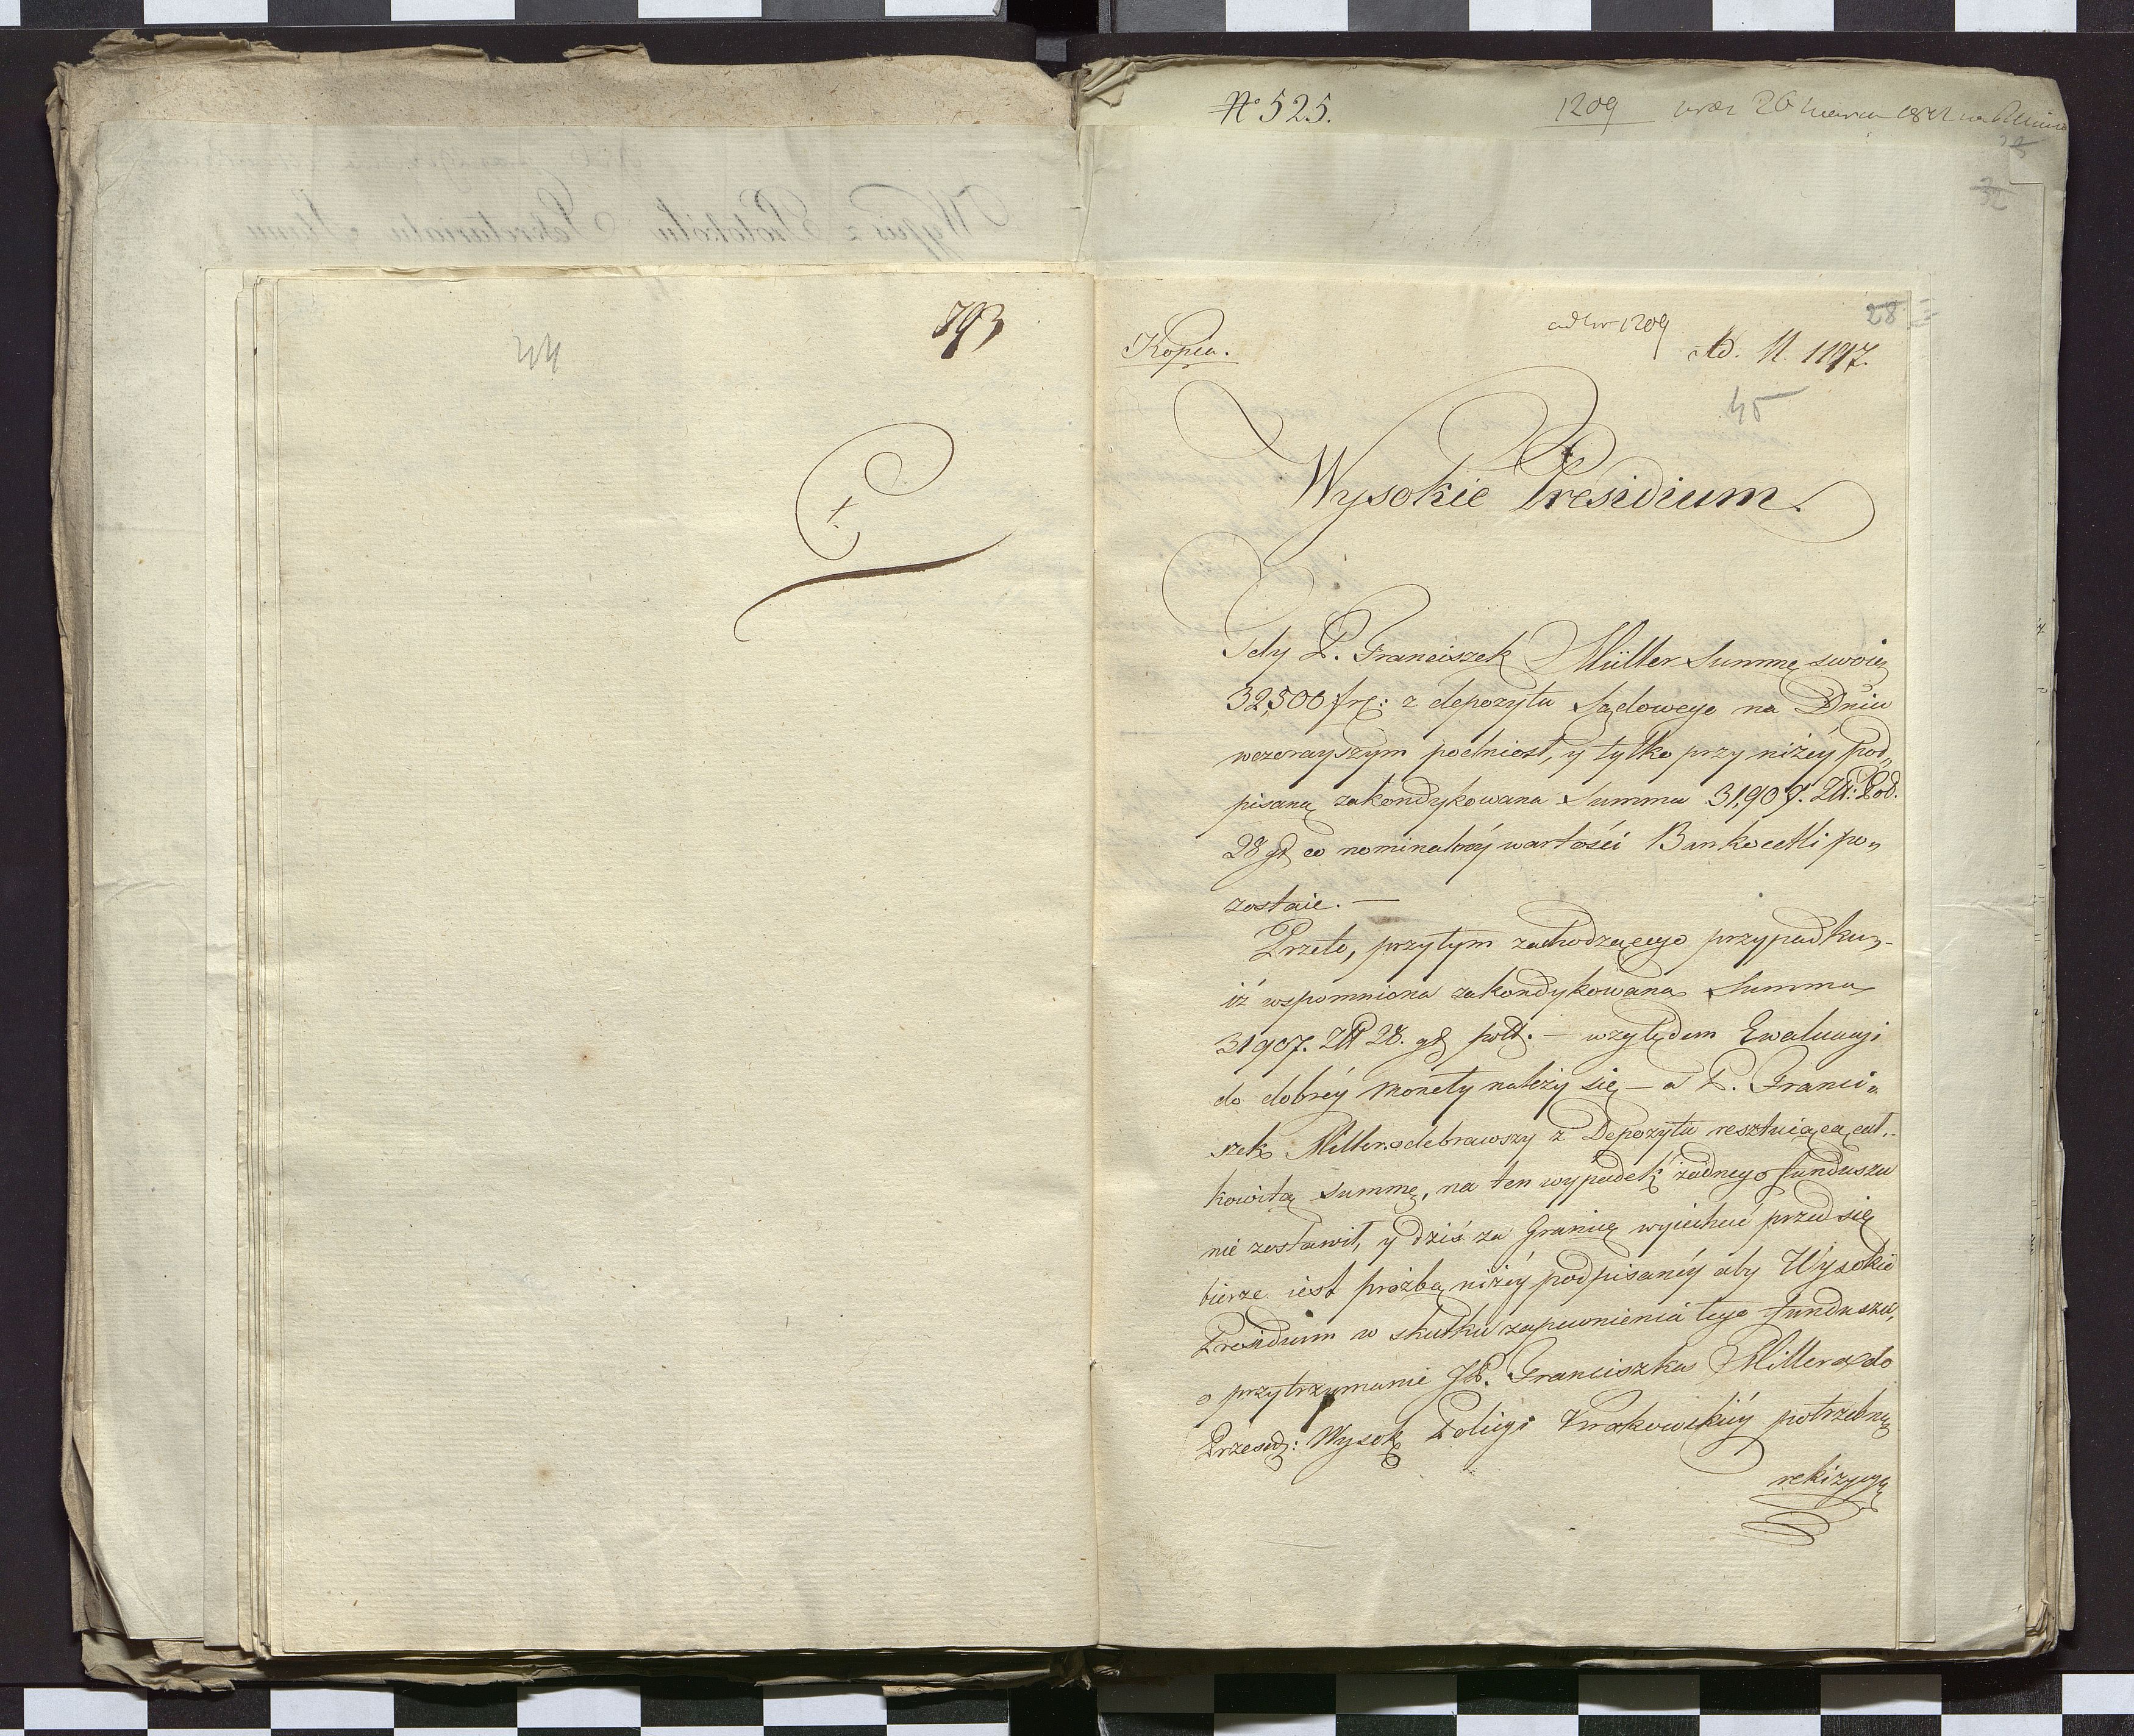 793
44
№ 525.
1209
28
32
Kopia.
ad Nr 1209
28
Ad. N. 1197.
45
Wysokie Presidium.
Gdy P. Franciszek Müller Summę swoię
32,500 frę: z depozytu Sądowego na Dniu
wczorayszym podniosł, y tylko przy niżéy pod„
pisaną zakondykowana Summa 31,907. Złł: Pol.
28 gł co nominalnéy wartości Bankocetli po„
zostaie. —
Przeto, przytym zachodzącego przypadku,
iż wspomniona zakondykowana Summa
31907. Złł 28. gł poll. — względem Ewaluacyi
do dobréy monety należy się — a P. Franci„
szek Miller odebrawszy z Depozytu resztuiącą cał„
kowitą summę, na ten wypadek żadnego funduszu
nie zostawił, y dziś za Granicę wyiechać przedsię
bierze iest prożbą niżéy podpisanéy aby Wysokie
Presidium w skutku zapewnienia tego funduszu,
o przytrzymanie JP. Franciszka Millera do
Przesw: Wysok Policyi Krakowskiéy potrzebną
rekizycyą